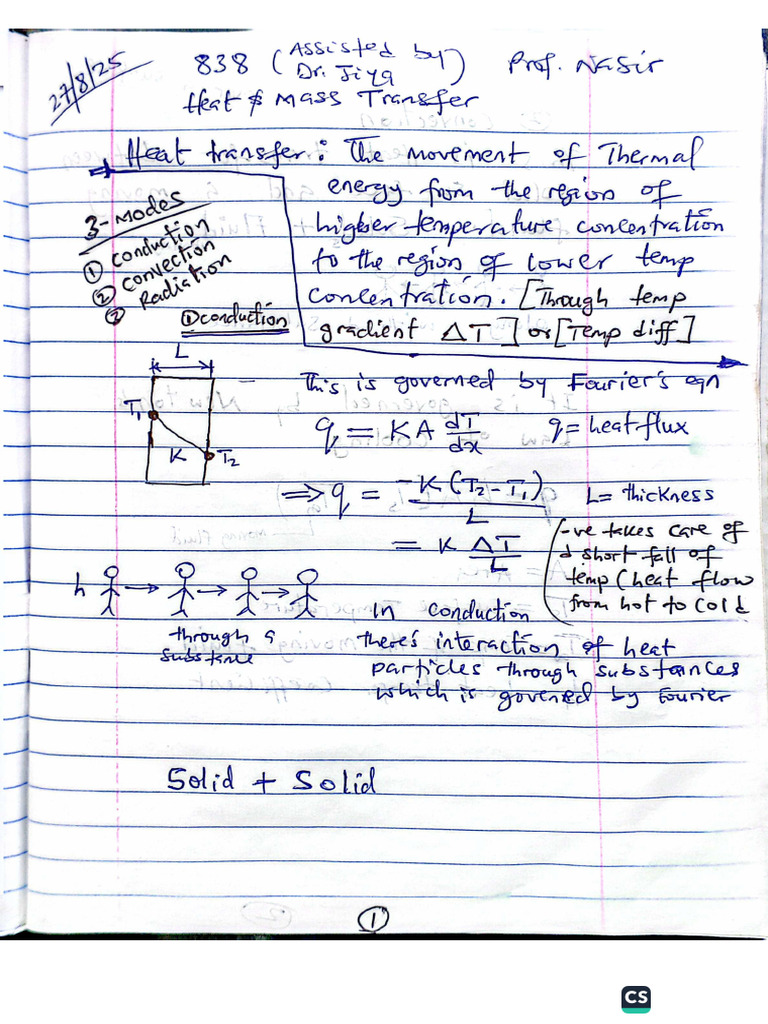 27/8/25
838 (Assisted by Dr. Jiya) Prof. Nasir
Heat & Mass Transfer
Heat transfer: The movement of Thermal
energy from the region of
higher temperature concentration
to the region of lower temp
concentration. [Through temp
gradient ΔT] or [Temp diff]
3-modes
① conduction
② convection
② Radiation
① conduction
L
T1
K
T2
This is governed by Fourier's eqn
q = KA dT/dx q = heat flux
⇒ q = -K(T2-T1)/L L = thickness
= K ΔT/L
(-ve takes care of
d short fall of
temp (heat flow
from hot to cold
h → → →
through a
substance
In conduction
there's interaction of heat
particles through substances
which is governed by Fourier
Solid + Solid
①
CS